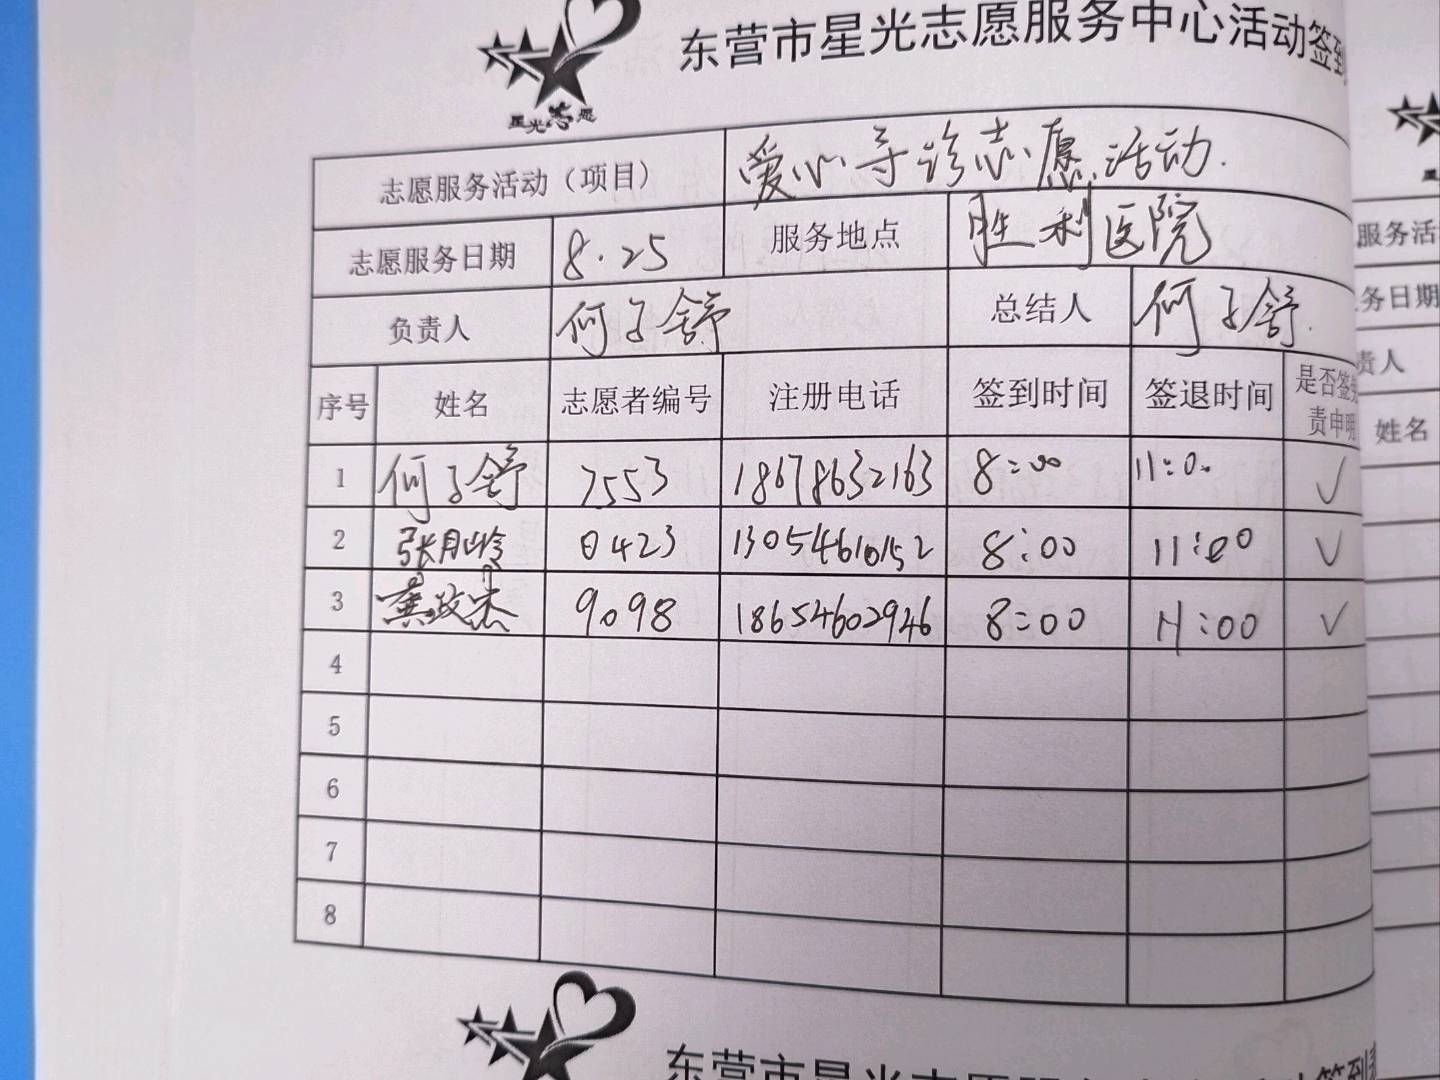 星光志愿
东营市星光志愿服务中心活动签到
志愿服务活动（项目） 爱心导诊志愿活动.
志愿服务日期 8.25 服务地点 胜利医院
负责人 何子舒 总结人 何子舒.
序号 姓名 志愿者编号 注册电话 签到时间 签退时间 是否签免
责申明
1 何子舒 7553 18678632163 8:00 11:00 ✓
2 张月岭 0423 13054610152 8:00 11:00 ✓
3 9098 18654602946 8:00 11:00 ✓
4
5
6
7
8
服务活
务日期
责人
姓名
东营市星光志愿服务
签到表